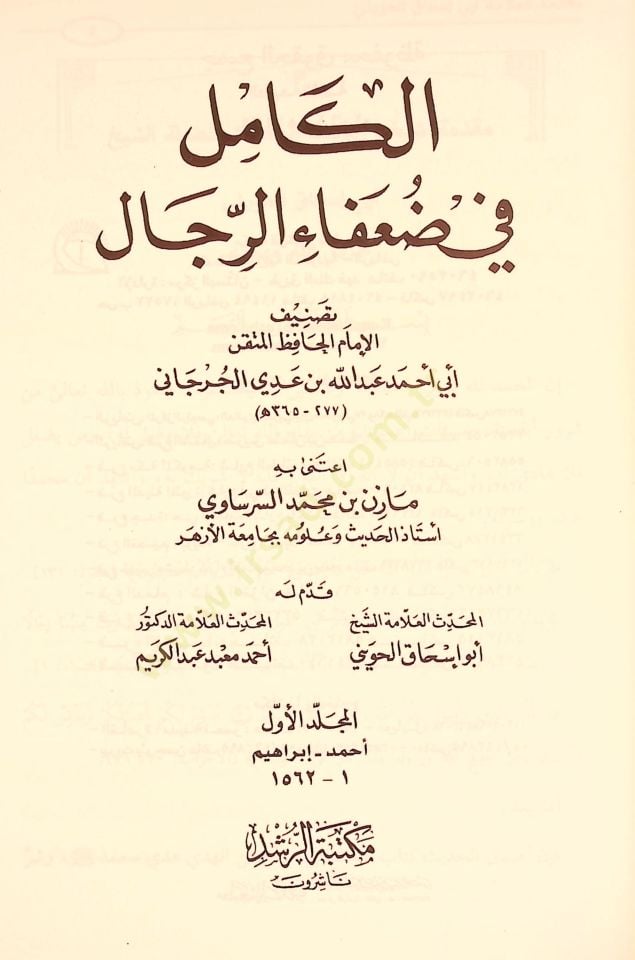 الكامل
في ضعفاء الرجال
تصنيف
الإمام الحافظ المتقن
أبي أحمد عبد الله بن عدي الجرجاني
(٢٧٧ - ٣٦٥ هـ)
اعتنى به
مازن بن محمد السرساوي
أستاذ الحديث وعلومه بجامعة الأزهر
قدم له
المحدث العلامة الشيخ
أبو إسحاق الحويني
المحدث العلامة الدكتور
أحمد معبد عبد الكريم
المجلد الأول
أحمد - إبراهيم
١ - ١٥٦٢
مكتبة الرشد
ناشرون